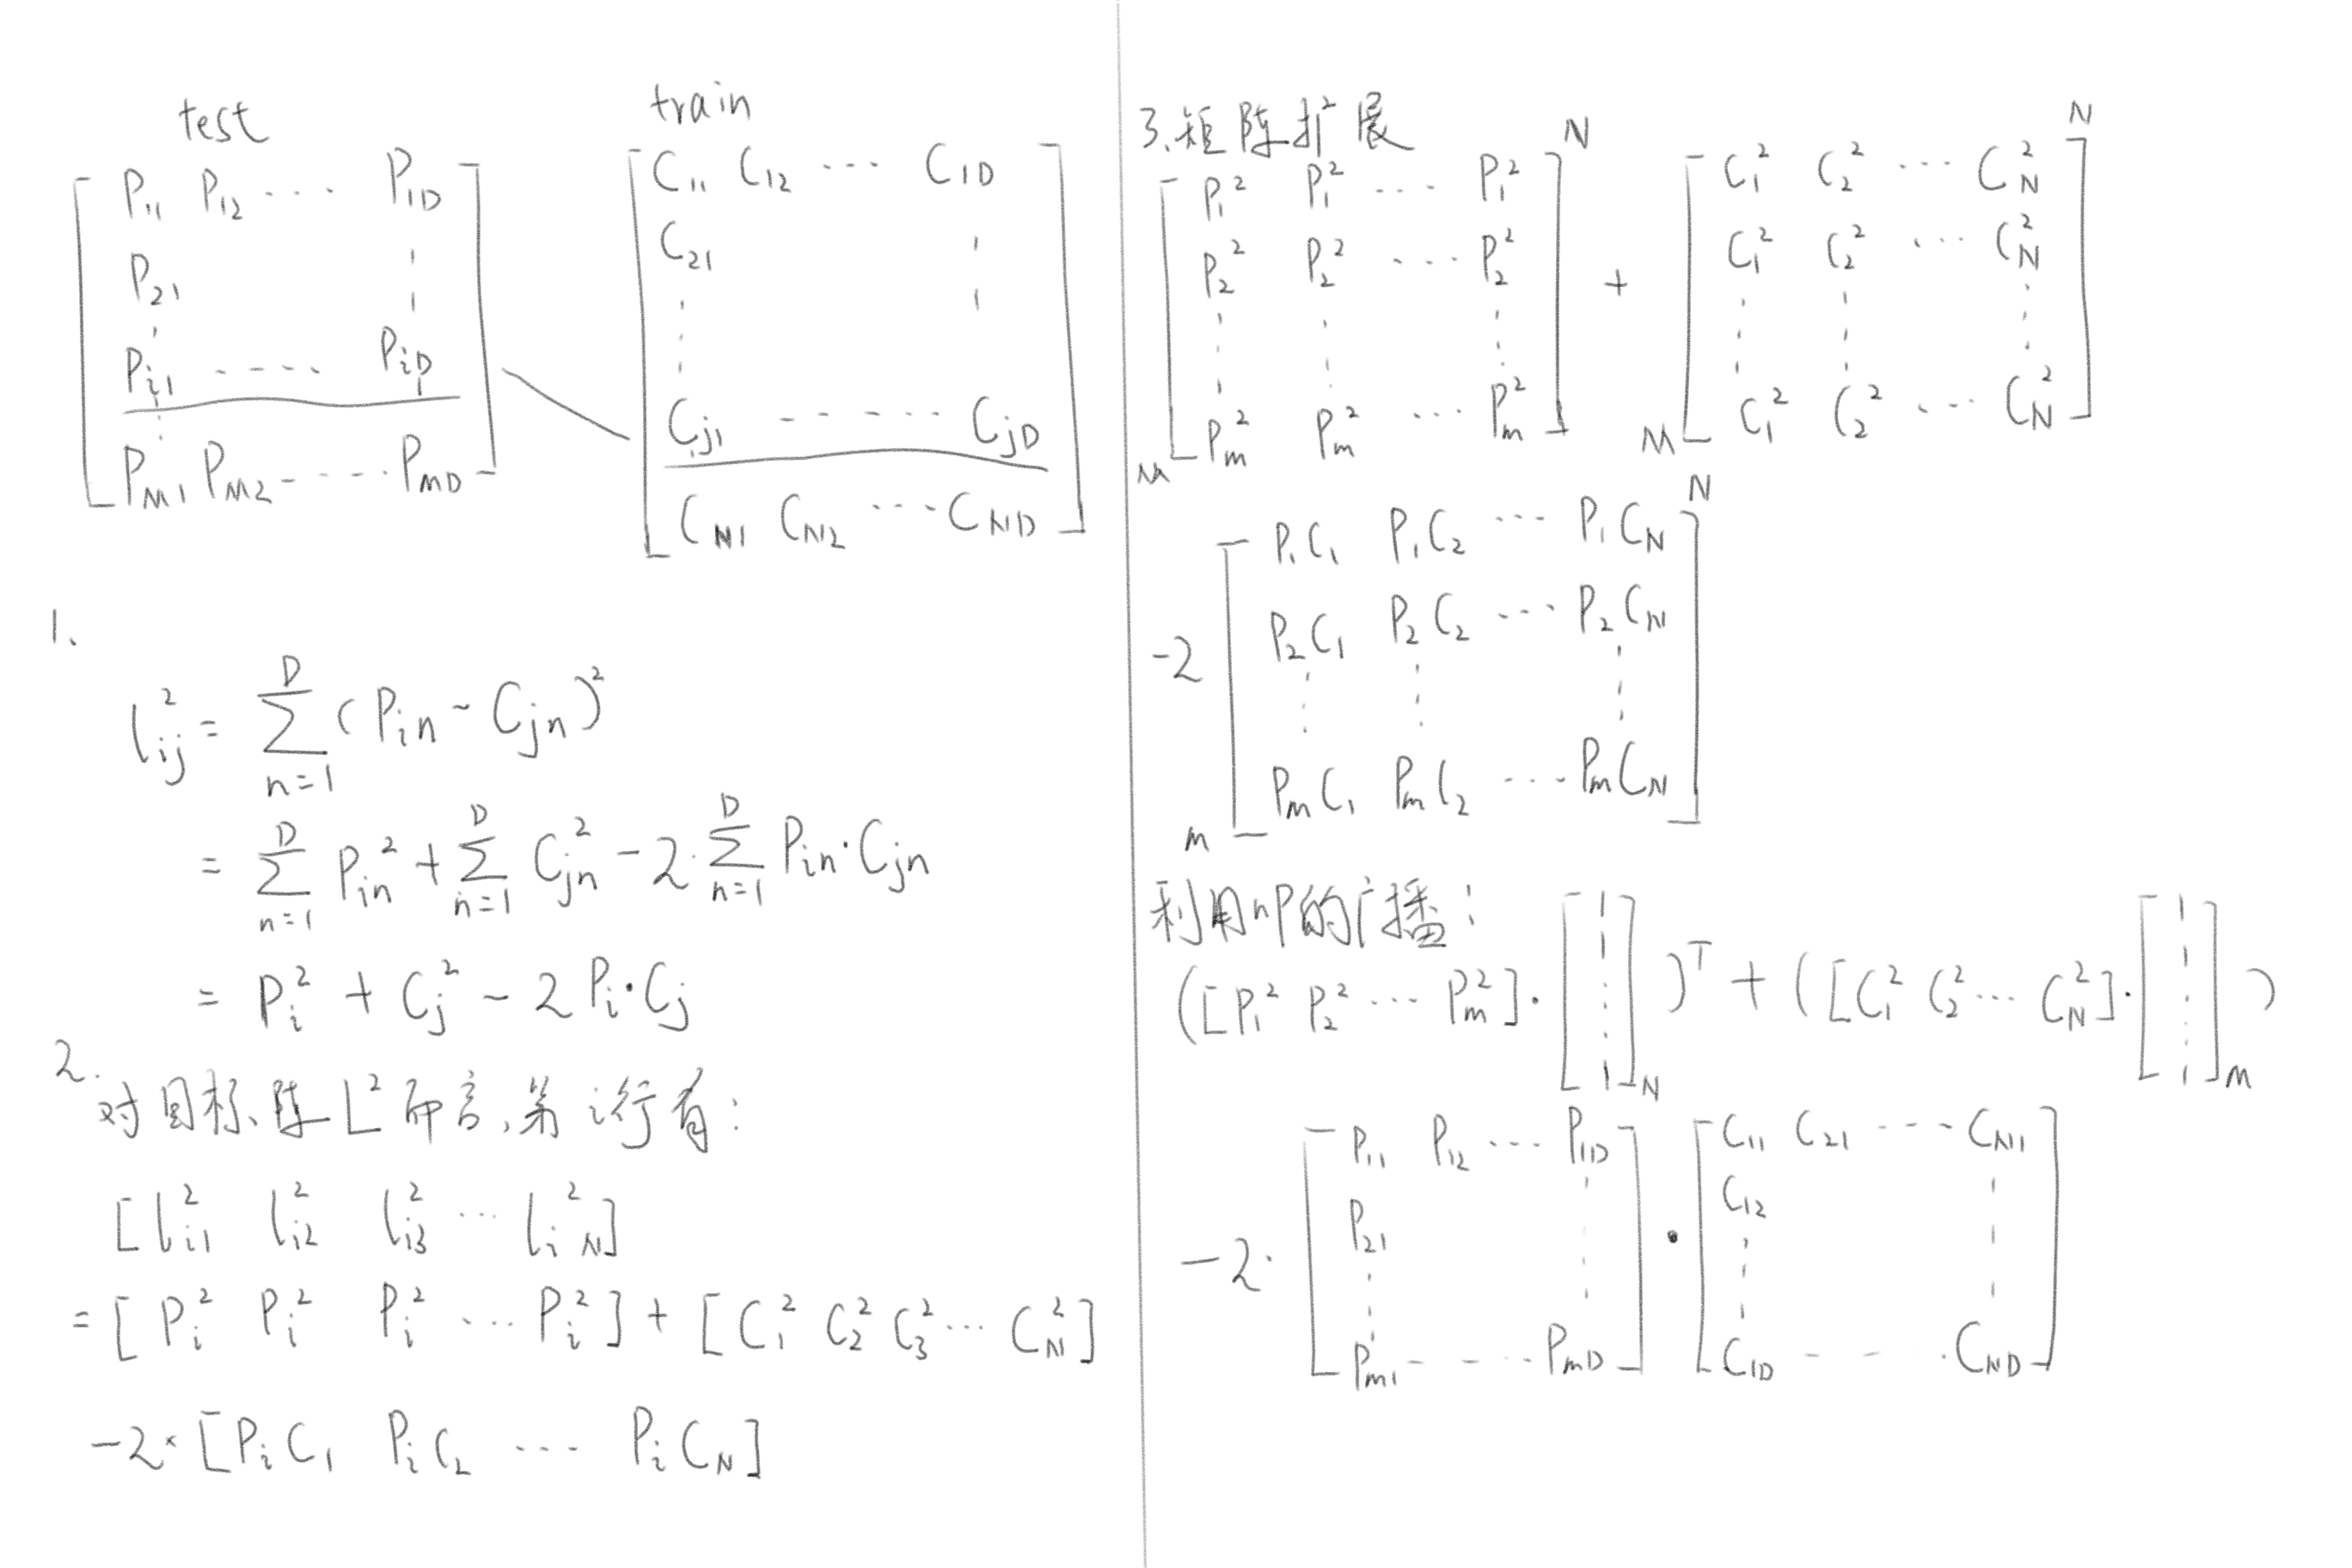 test
P₁₁ P₁₂ ··· P₁D
P₂₁ ⋮
Pᵢ₁ ···· PᵢD
P_M1 P_M2 ···· P_MD
train
C₁₁ C₁₂ ··· C₁D
C₂₁ ⋮
Cⱼ₁ ····· CⱼD
C_N1 C_N2 ··· C_ND
1、
l_ij² = Σ_{n=1}^{D} (P_in - C_jn)²
= Σ_{n=1}^{D} P_in² + Σ_{n=1}^{D} C_jn² - 2·Σ_{n=1}^{D} P_in·C_jn
= P_i² + C_j² - 2P_i·C_j
2.
对目标阵L²而言,第i行有:
[l_i1² l_i2² l_i3² ··· l_iN²]
= [P_i² P_i² P_i² ··· P_i²] + [C_1² C_2² C_3² ··· C_N²]
-2×[P_iC_1 P_iC_2 ··· P_iC_N]
3.矩阵扩展
N
P_1² P_1² ··· P_1²
P_2² P_2² ··· P_2²
⋮ ⋮ ⋮
P_m² P_m² ··· P_m²
M
+
N
C_1² C_2² ··· C_N²
C_1² C_2² ··· C_N²
⋮ ⋮ ⋮
C_1² C_2² ··· C_N²
M
-2
N
P_1C_1 P_1C_2 ··· P_1C_N
P_2C_1 P_2C_2 ··· P_2C_N
⋮ ⋮ ⋮
P_mC_1 P_mC_2 ··· P_mC_N
m
利用nP的广播:
([P_1² P_2² ··· P_m²]·[1 1 ⋮ 1]_N)^T + ([C_1² C_2² ··· C_N²]·[1 1 ⋮ 1]_m)
-2·
P₁₁ P₁₂ ··· P₁D
P₂₁ ⋮
P_m1 ···· P_mD
·
C₁₁ C₂₁ ···· C_N1
C₁₂ ⋮
C₁D ··· C_ND